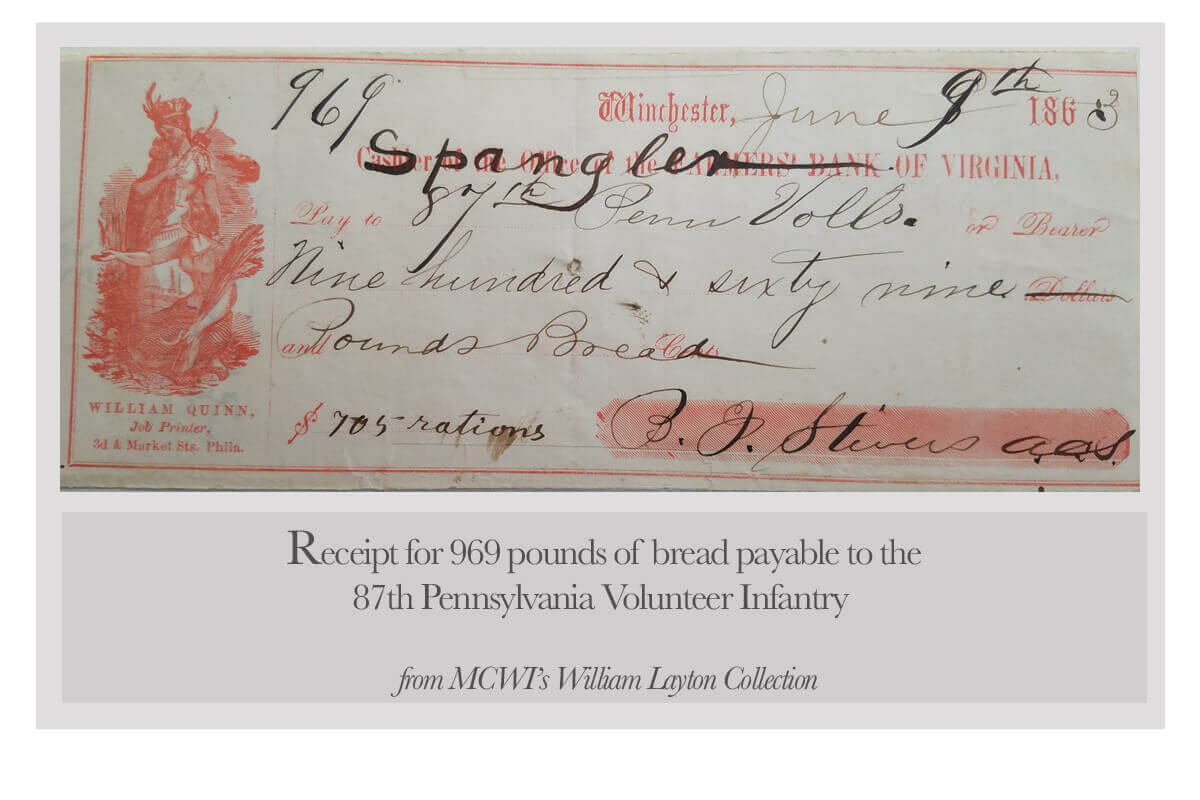 969 Winchester, June 9th 1863
Cashier of the Office of the FARMERS' BANK OF VIRGINIA,
Spangler
Pay to 87th Penn Volls. or Bearer
Nine hundred & sixty nine Dollars
and Pounds Bread Cents
$ 705 rations B. F. Stivers a.a.s.
WILLIAM QUINN,
Job Printer,
3d & Market Sts. Phila.
Receipt for 969 pounds of bread payable to the
87th Pennsylvania Volunteer Infantry
from MCWI's William Layton Collection